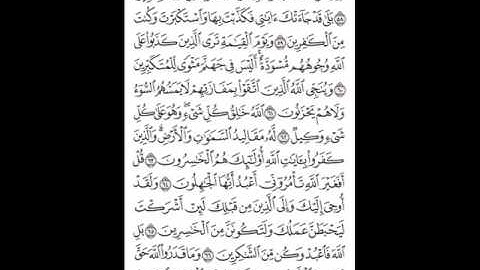 ٥٨ بَلَىٰ قَدْ جَآءَتْكَ ءَايَٰتِى فَكَذَّبْتَ بِهَا وَٱسْتَكْبَرْتَ وَكُنتَ
مِنَ ٱلْكَٰفِرِينَ ٥٩ وَيَوْمَ ٱلْقِيَٰمَةِ تَرَى ٱلَّذِينَ كَذَبُوا۟ عَلَى
ٱللَّهِ وُجُوهُهُم مُّسْوَدَّةٌ أَلَيْسَ فِى جَهَنَّمَ مَثْوًى لِّلْمُتَكَبِّرِينَ
٦٠ وَيُنَجِّى ٱللَّهُ ٱلَّذِينَ ٱتَّقَوْا۟ بِمَفَازَتِهِمْ لَا يَمَسُّهُمُ ٱلسُّوٓءُ
وَلَا هُمْ يَحْزَنُونَ ٦١ ٱللَّهُ خَٰلِقُ كُلِّ شَىْءٍ وَهُوَ عَلَىٰ كُلِّ
شَىْءٍ وَكِيلٌ ٦٢ لَّهُۥ مَقَالِيدُ ٱلسَّمَٰوَٰتِ وَٱلْأَرْضِ وَٱلَّذِينَ
كَفَرُوا۟ بِـَٔايَٰتِ ٱللَّهِ أُو۟لَٰٓئِكَ هُمُ ٱلْخَٰسِرُونَ ٦٣ قُلْ
أَفَغَيْرَ ٱللَّهِ تَأْمُرُوٓنِّىٓ أَعْبُدُ أَيُّهَا ٱلْجَٰهِلُونَ ٦٤ وَلَقَدْ
أُوحِىَ إِلَيْكَ وَإِلَى ٱلَّذِينَ مِن قَبْلِكَ لَئِنْ أَشْرَكْتَ
لَيَحْبَطَنَّ عَمَلُكَ وَلَتَكُونَنَّ مِنَ ٱلْخَٰسِرِينَ ٦٥ بَلِ
ٱللَّهَ فَٱعْبُدْ وَكُن مِّنَ ٱلشَّٰكِرِينَ ٦٦ وَمَا قَدَرُوا۟ ٱللَّهَ حَقَّ